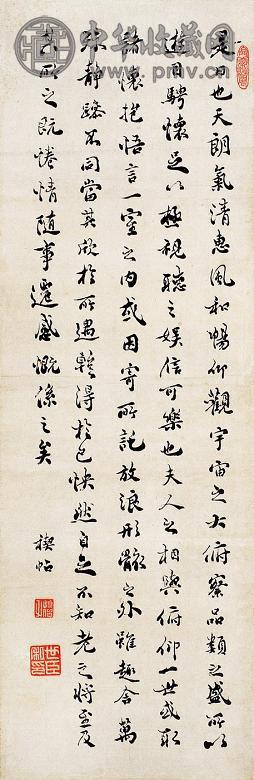 中华收藏网
http://www.pmv.cn
是日也天朗氣清惠風和暢仰觀宇宙之大俯察品類之盛所以
遊目騁懷足以極視聽之娛信可樂也夫人之相與俯仰一世或取
諸懷抱悟言一室之內或因寄所託放浪形骸之外雖趣舍萬
殊靜躁不同當其欣於所遇暫得於己快然自足不知老之將至及
其所之既惓情隨事遷感慨係之矣
禊帖